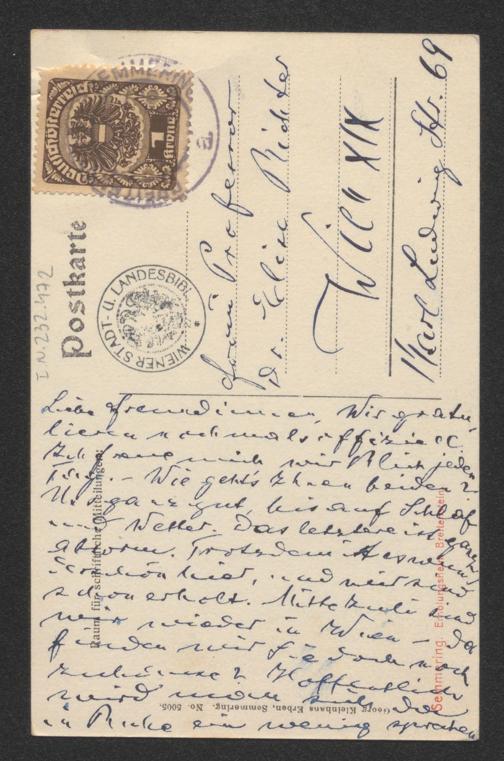 Postkarte
SEMMERING
a
Deutschösterreich
1
Krone
WIENER STADT- U. LANDESBIBL
I N 232.472
Frau Professor
Dr. Elise Richter
Wien XIX
Karl Ludwig Str. 69
Raum für schriftliche Mitteilungen:
Liebe Freundinnen, Wir gratu-
lieren nochmals offiziell.
Ich freue mich wie jeden
Tag. – Wie gehts Ihnen beiden?
Uns ganz gut, bis auf Schlaf
und Wetter. Das letztere ist ganz
abnorm. Trotzdem ist es
schön hier, und wir sind
schon erholt. Mitte Juli sind
wir wieder in Wien – da
finden wir Sie doch noch
zuhause? Hoffentlich
wird man sich da
in Ruhe ein wenig sprechen
Semmering. Erholungsheim Breitenstein
Georg Kleinhans Erben, Semmering. No. 5005.